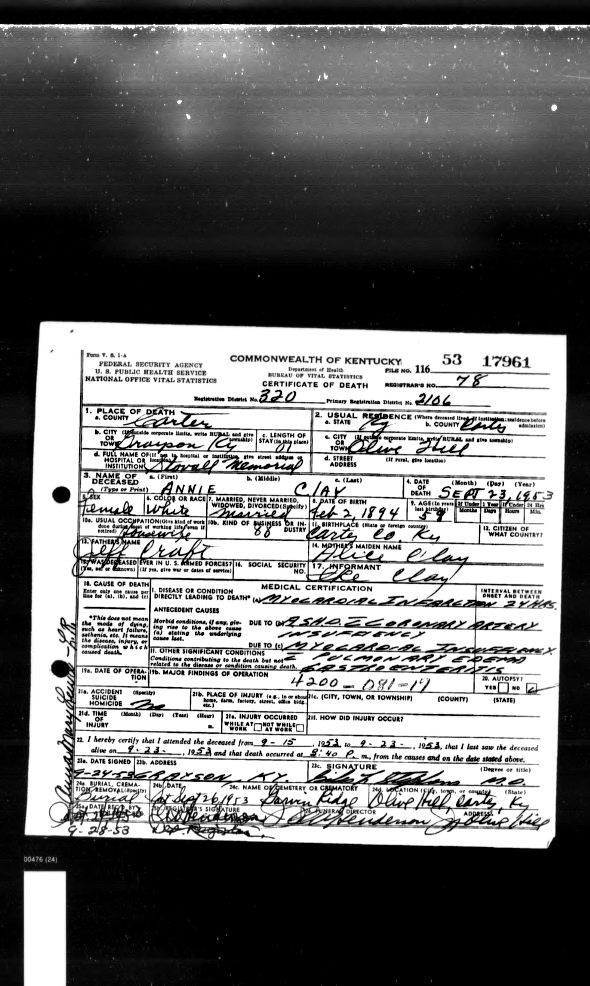 Form V. S. 1-A
FEDERAL SECURITY AGENCY
U. S. PUBLIC HEALTH SERVICE
NATIONAL OFFICE VITAL STATISTICS
COMMONWEALTH OF KENTUCKY
Department of Health
BUREAU OF VITAL STATISTICS
CERTIFICATE OF DEATH
FILE NO. 116 53 17961
REGISTRAR'S NO. 78
Registration District No. 320 Primary Registration District No. 2106
1. PLACE OF DEATH
a. COUNTY Carter
b. CITY (If outside corporate limits, write RURAL and give township)
OR TOWN Grayson Ky
c. LENGTH OF STAY (in this place)
d. FULL NAME OF (If not in hospital or institution, give street address or location)
HOSPITAL OR INSTITUTION Stovall Memorial
2. USUAL RESIDENCE (Where deceased lived. If institution: residence before admission)
a. STATE Ky b. COUNTY Carter
c. CITY (If outside corporate limits, write RURAL and give township)
OR TOWN Olive Hill
d. STREET ADDRESS (If rural, give location)
3. NAME OF DECEASED (Type or Print)
a. (First) ANNIE b. (Middle) c. (Last) CLAY
4. DATE OF DEATH (Month) (Day) (Year) SEPT 23, 1953
5. SEX Female
6. COLOR OR RACE White
7. MARRIED, NEVER MARRIED, WIDOWED, DIVORCED (Specify) Married
8. DATE OF BIRTH Feb 2, 1894
9. AGE (In years last birthday) 59
If Under 1 Year Months Days
If Under 24 Hrs Hours Min.
10a. USUAL OCCUPATION (Give kind of work done during most of working life, even if retired) Housewife
10b. KIND OF BUSINESS OR INDUSTRY 88
11. BIRTHPLACE (State or foreign country) Carter Co. Ky
12. CITIZEN OF WHAT COUNTRY?
13. FATHER'S NAME Jeff Craft
14. MOTHER'S MAIDEN NAME Clay
15. WAS DECEASED EVER IN U. S. ARMED FORCES?
(Yes, no, or unknown) (If yes, give war or dates of service)
16. SOCIAL SECURITY NO.
17. INFORMANT Clay
18. CAUSE OF DEATH
Enter only one cause per line for (a), (b), and (c)
*This does not mean the mode of dying, such as heart failure, asthenia, etc. It means the disease, injury, or complication which caused death.
MEDICAL CERTIFICATION
INTERVAL BETWEEN ONSET AND DEATH
I. DISEASE OR CONDITION DIRECTLY LEADING TO DEATH* (a) MYOCARDIAL INFARCTION 24 HRS.
ANTECEDENT CAUSES
Morbid conditions, if any, giving rise to the above cause (a) stating the underlying cause last.
DUE TO (b) ASHD CORONARY ARTERY
INSUFFICIENCY
DUE TO (c) MYOCARDIAL INSUFFICIENCY
II. OTHER SIGNIFICANT CONDITIONS
Conditions contributing to the death but not related to the disease or condition causing death.
PULMONARY EDEMA
GASTROENTERITIS
19a. DATE OF OPERATION
19b. MAJOR FINDINGS OF OPERATION
4200
20. AUTOPSY? YES NO
21a. ACCIDENT SUICIDE HOMICIDE (Specify) No
21b. PLACE OF INJURY (e.g., in or about home, farm, factory, street, office bldg., etc.)
21c. (CITY, TOWN, OR TOWNSHIP) (COUNTY) (STATE)
21d. TIME OF INJURY (Month) (Day) (Year) (Hour) m.
21e. INJURY OCCURRED WHILE AT WORK NOT WHILE AT WORK
21f. HOW DID INJURY OCCUR?
22. I hereby certify that I attended the deceased from 9-15, 1953, to 9-23, 1953, that I last saw the deceased
alive on 9-23, 1953, and that death occurred at 8:40 P. m., from the causes and on the date stated above.
23a. DATE SIGNED 9-24-53
23b. ADDRESS GRAYSON, KY.
23c. SIGNATURE (Degree or title) M.D.
24a. BURIAL, CREMATION, REMOVAL (Specify) Burial
24b. DATE Sept 26, 1953
24c. NAME OF CEMETERY OR CREMATORY Garvin Ridge
24d. LOCATION (City, town, or county) (State) Olive Hill, Carter, Ky
25a. DATE REC'D BY
9-28-53
REGISTRAR'S SIGNATURE
FUNERAL DIRECTOR Henderson
ADDRESS Olive Hill
00476 (24)